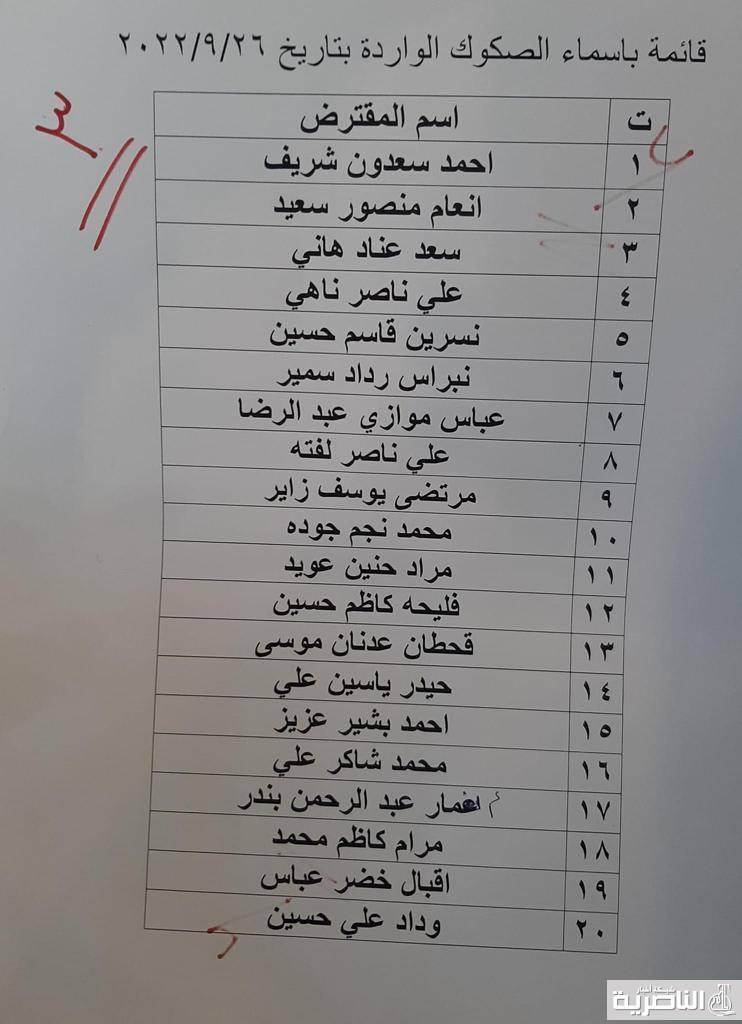 قائمة باسماء الصكوك الواردة بتاريخ ٢٠٢٢/٩/٢٦
٣
ت اسم المقترض
١ احمد سعدون شريف
٢ انعام منصور سعيد
٣ سعد عناد هاني
٤ علي ناصر ناهي
٥ نسرين قاسم حسين
٦ نبراس رداد سمير
٧ عباس موازي عبد الرضا
٨ علي ناصر لفته
٩ مرتضى يوسف زاير
١٠ محمد نجم جوده
١١ مراد حنين عويد
١٢ فليحه كاظم حسين
١٣ قحطان عدنان موسى
١٤ حيدر ياسين علي
١٥ احمد بشير عزيز
١٦ محمد شاكر علي
١٧ عبد الرحمن بندر
١٨ مرام كاظم محمد
١٩ اقبال خضر عباس
٢٠ وداد علي حسين
شبكة أخبار
الناصرية